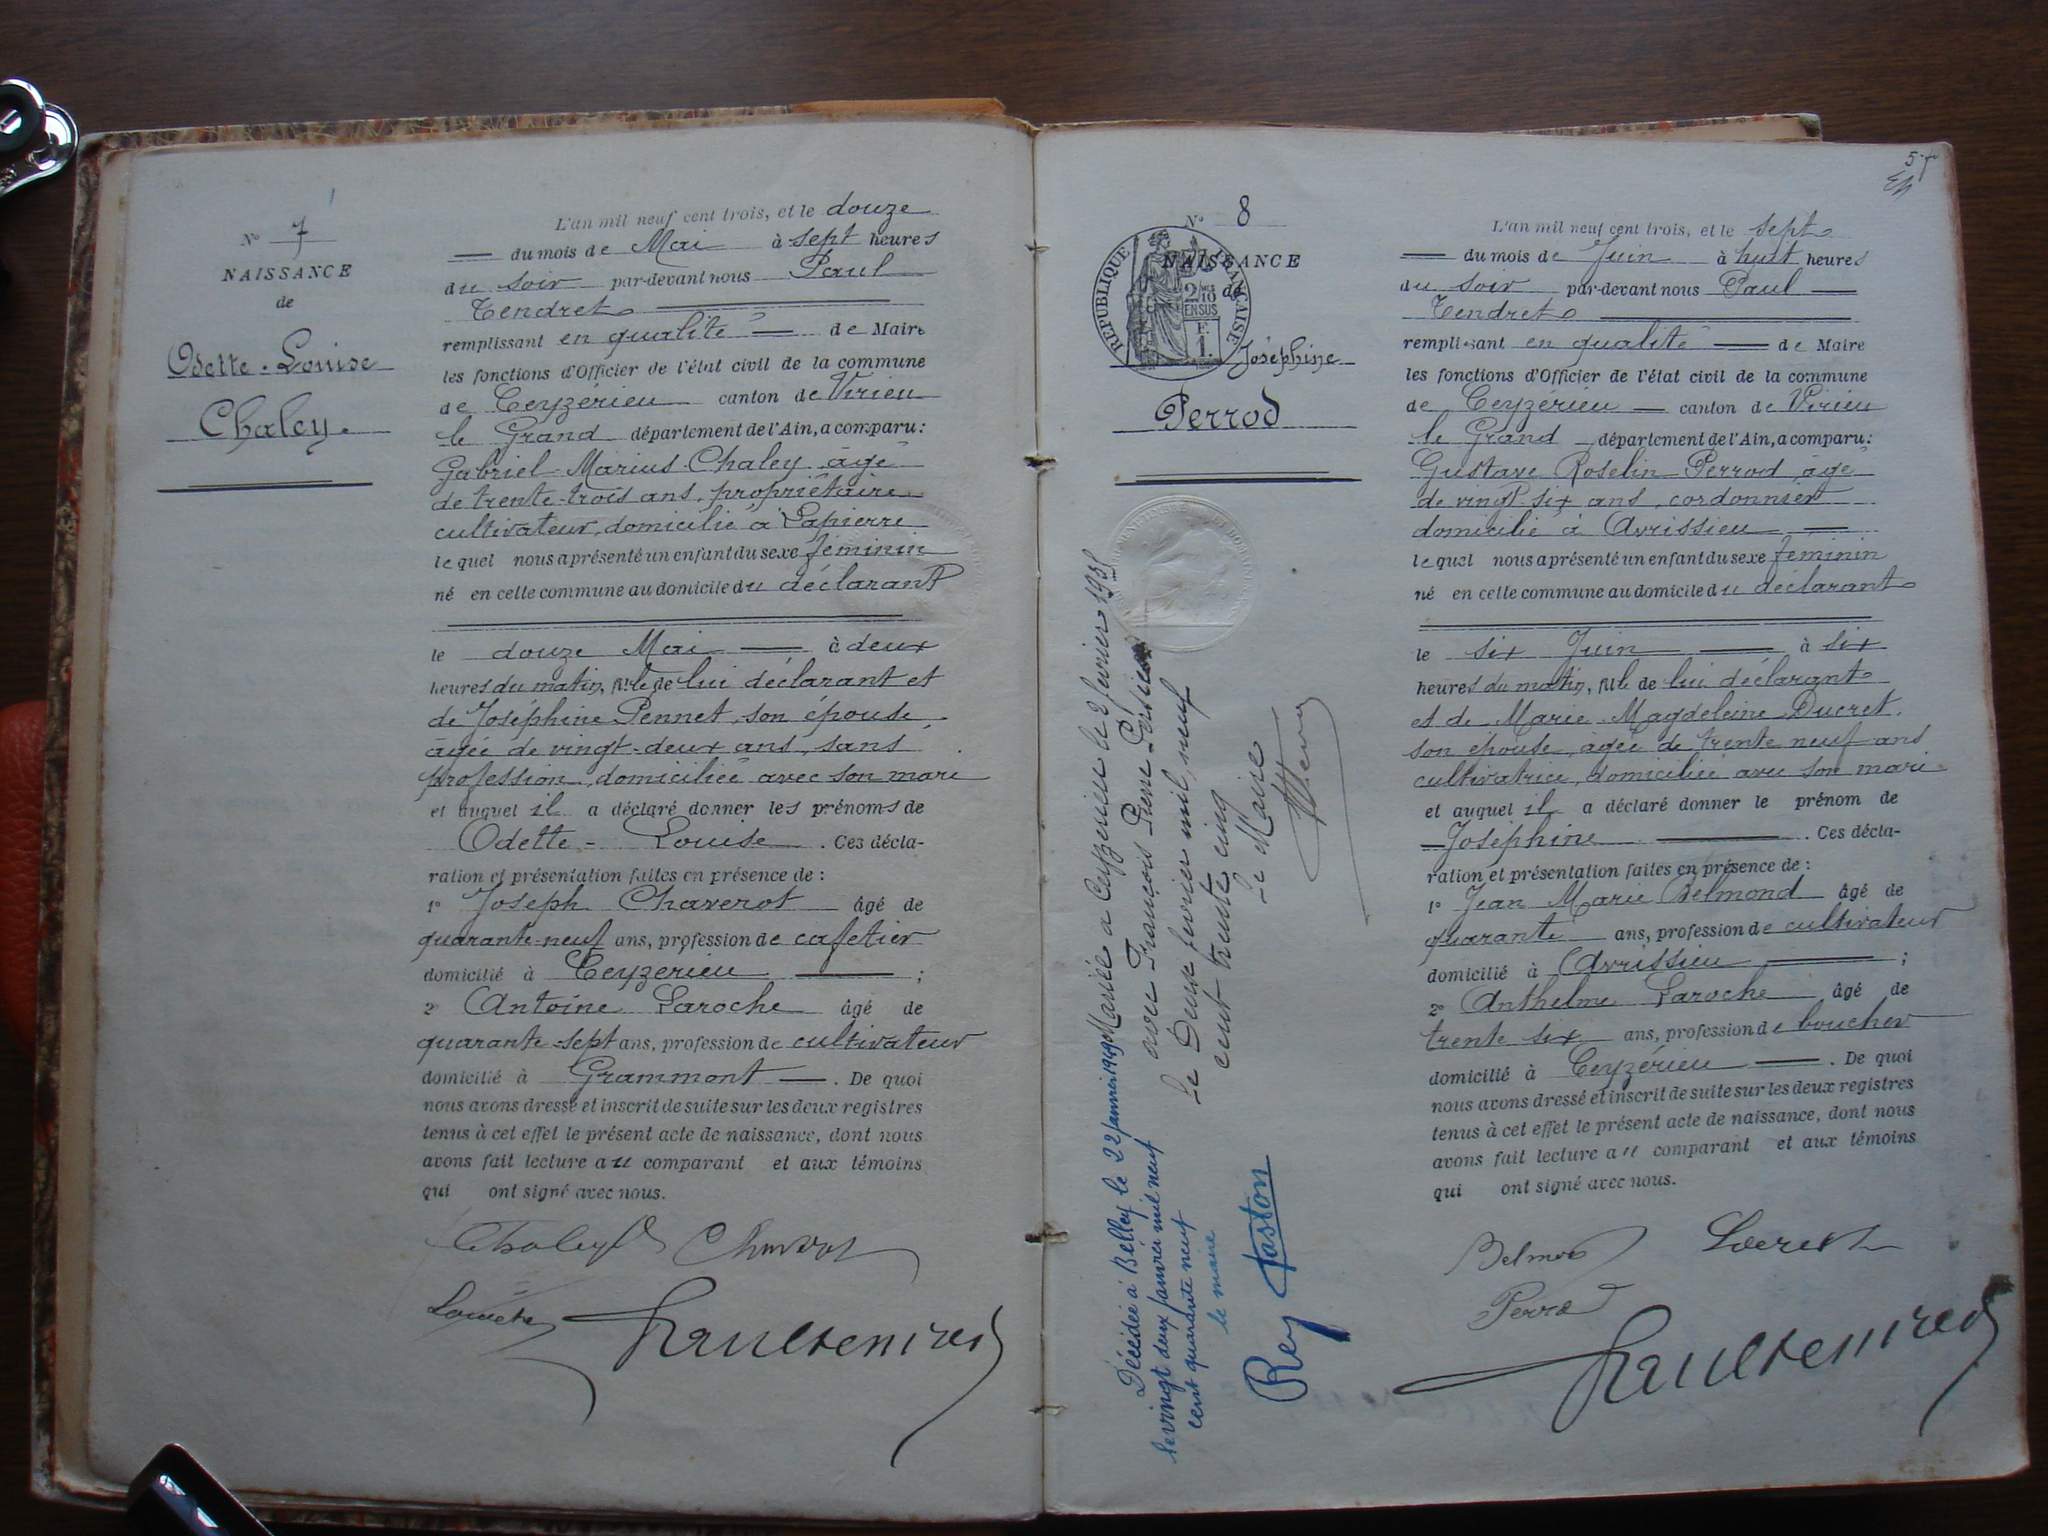 N° 7
NAISSANCE
de
Odette-Louise
Chaley.
L'an mil neuf cent trois, et le douze
du mois de Mai à sept heures
du soir par-devant nous Paul
Tendret
remplissant en qualité de Maire
les fonctions d'Officier de l'état civil de la commune
de Ceyzérieu canton de Virieu
le Grand département de l'Ain, a comparu:
Gabriel-Marius Chaley âgé
de trente-trois ans, propriétaire
cultivateur, domicilié à Lapierre
le quel nous a présenté un enfant du sexe féminin
né en cette commune au domicile du déclarant
le douze Mai à deux
heures du matin, fille de lui déclarant et
de Joséphine Pennet, son épouse,
âgée de vingt-deux ans, sans
profession, domiciliée avec son mari
et auquel il a déclaré donner les prénoms de
Odette-Louise. Ces décla-
ration et présentation faites en présence de :
1° Joseph Chaverot âgé de
quarante-neuf ans, profession de cafetier
domicilié à Ceyzerieu ;
2° Antoine Laroche âgé de
quarante-sept ans, profession de cultivateur
domicilié à Grammont. De quoi
nous avons dressé et inscrit de suite sur les deux registres
tenus à cet effet le présent acte de naissance, dont nous
avons fait lecture au comparant et aux témoins
qui ont signé avec nous.
Chaley
Paul Tendret
5
N° 8
NAISSANCE
de
REPUBLIQUE FRANÇAISE
2/10
EN SUS
F.
1.
Joséphine
Perrod
Mariée à Ceyzerieu le 2 février 1935
avec François Pierre
Le Deux février mil neuf
cent trente cinq
Le Maire
Décédée à Belley le 22 janvier 1949
le vingt deux janvier mil neuf
cent quarante neuf
le maire
Rey Gaston
L'an mil neuf cent trois, et le sept
du mois de Juin à huit heures
du soir par-devant nous Paul
Tendret
remplissant en qualité de Maire
les fonctions d'Officier de l'état civil de la commune
de Ceyzérieu canton de Virieu
le Grand département de l'Ain, a comparu:
Gustave Roselin Perrod âgé
de vingt-six ans, cordonnier
domicilié à Avrissieu
le quel nous a présenté un enfant du sexe féminin
né en cette commune au domicile du déclarant
le six Juin à six
heures du matin, fille de lui déclarant
et de Marie-Magdeleine Ducret,
son épouse, âgée de trente neuf ans
cultivatrice, domiciliée avec son mari
et auquel il a déclaré donner le prénom de
Joséphine. Ces décla-
ration et présentation faites en présence de :
1° Jean Marie Belmond âgé de
quarante ans, profession de cultivateur
domicilié à Avrissieu ;
2° Anthelme Laroche âgé de
trente six ans, profession de boucher
domicilié à Ceyzérieu. De quoi
nous avons dressé et inscrit de suite sur les deux registres
tenus à cet effet le présent acte de naissance, dont nous
avons fait lecture au comparant et aux témoins
qui ont signé avec nous.
Perrod
Paul Tendret